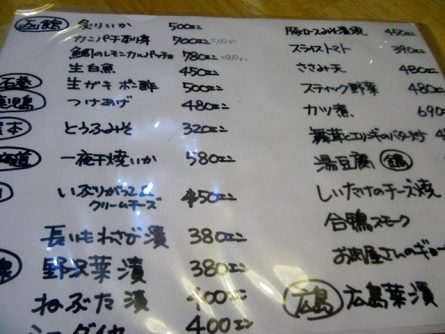 函館 炙りいか 500エン
カンパチ刺身 700エン
鯛のレモンカルパッチョ 780エン
生白魚 450エン
生ガキ ポン酢 500エン
つけあげ 480エン
とうふみそ 320エン
一夜干焼いか 580エン
いぶりがっこ
クリームチーズ 450エン
長いもわさび漬 380エン
野沢菜漬 380エン
ねぶた漬 400エン
400エン
豚ロースみそ漬焼 450エン
スライストマト 390エン
ささみ天 480エン
スティック野菜 480エン
カツ煮 690
舞茸とエリンギのバター炒
湯豆腐
しいたけのチーズ焼
合鴨スモーク
お肉屋さんのギョー
広島 広島菜漬